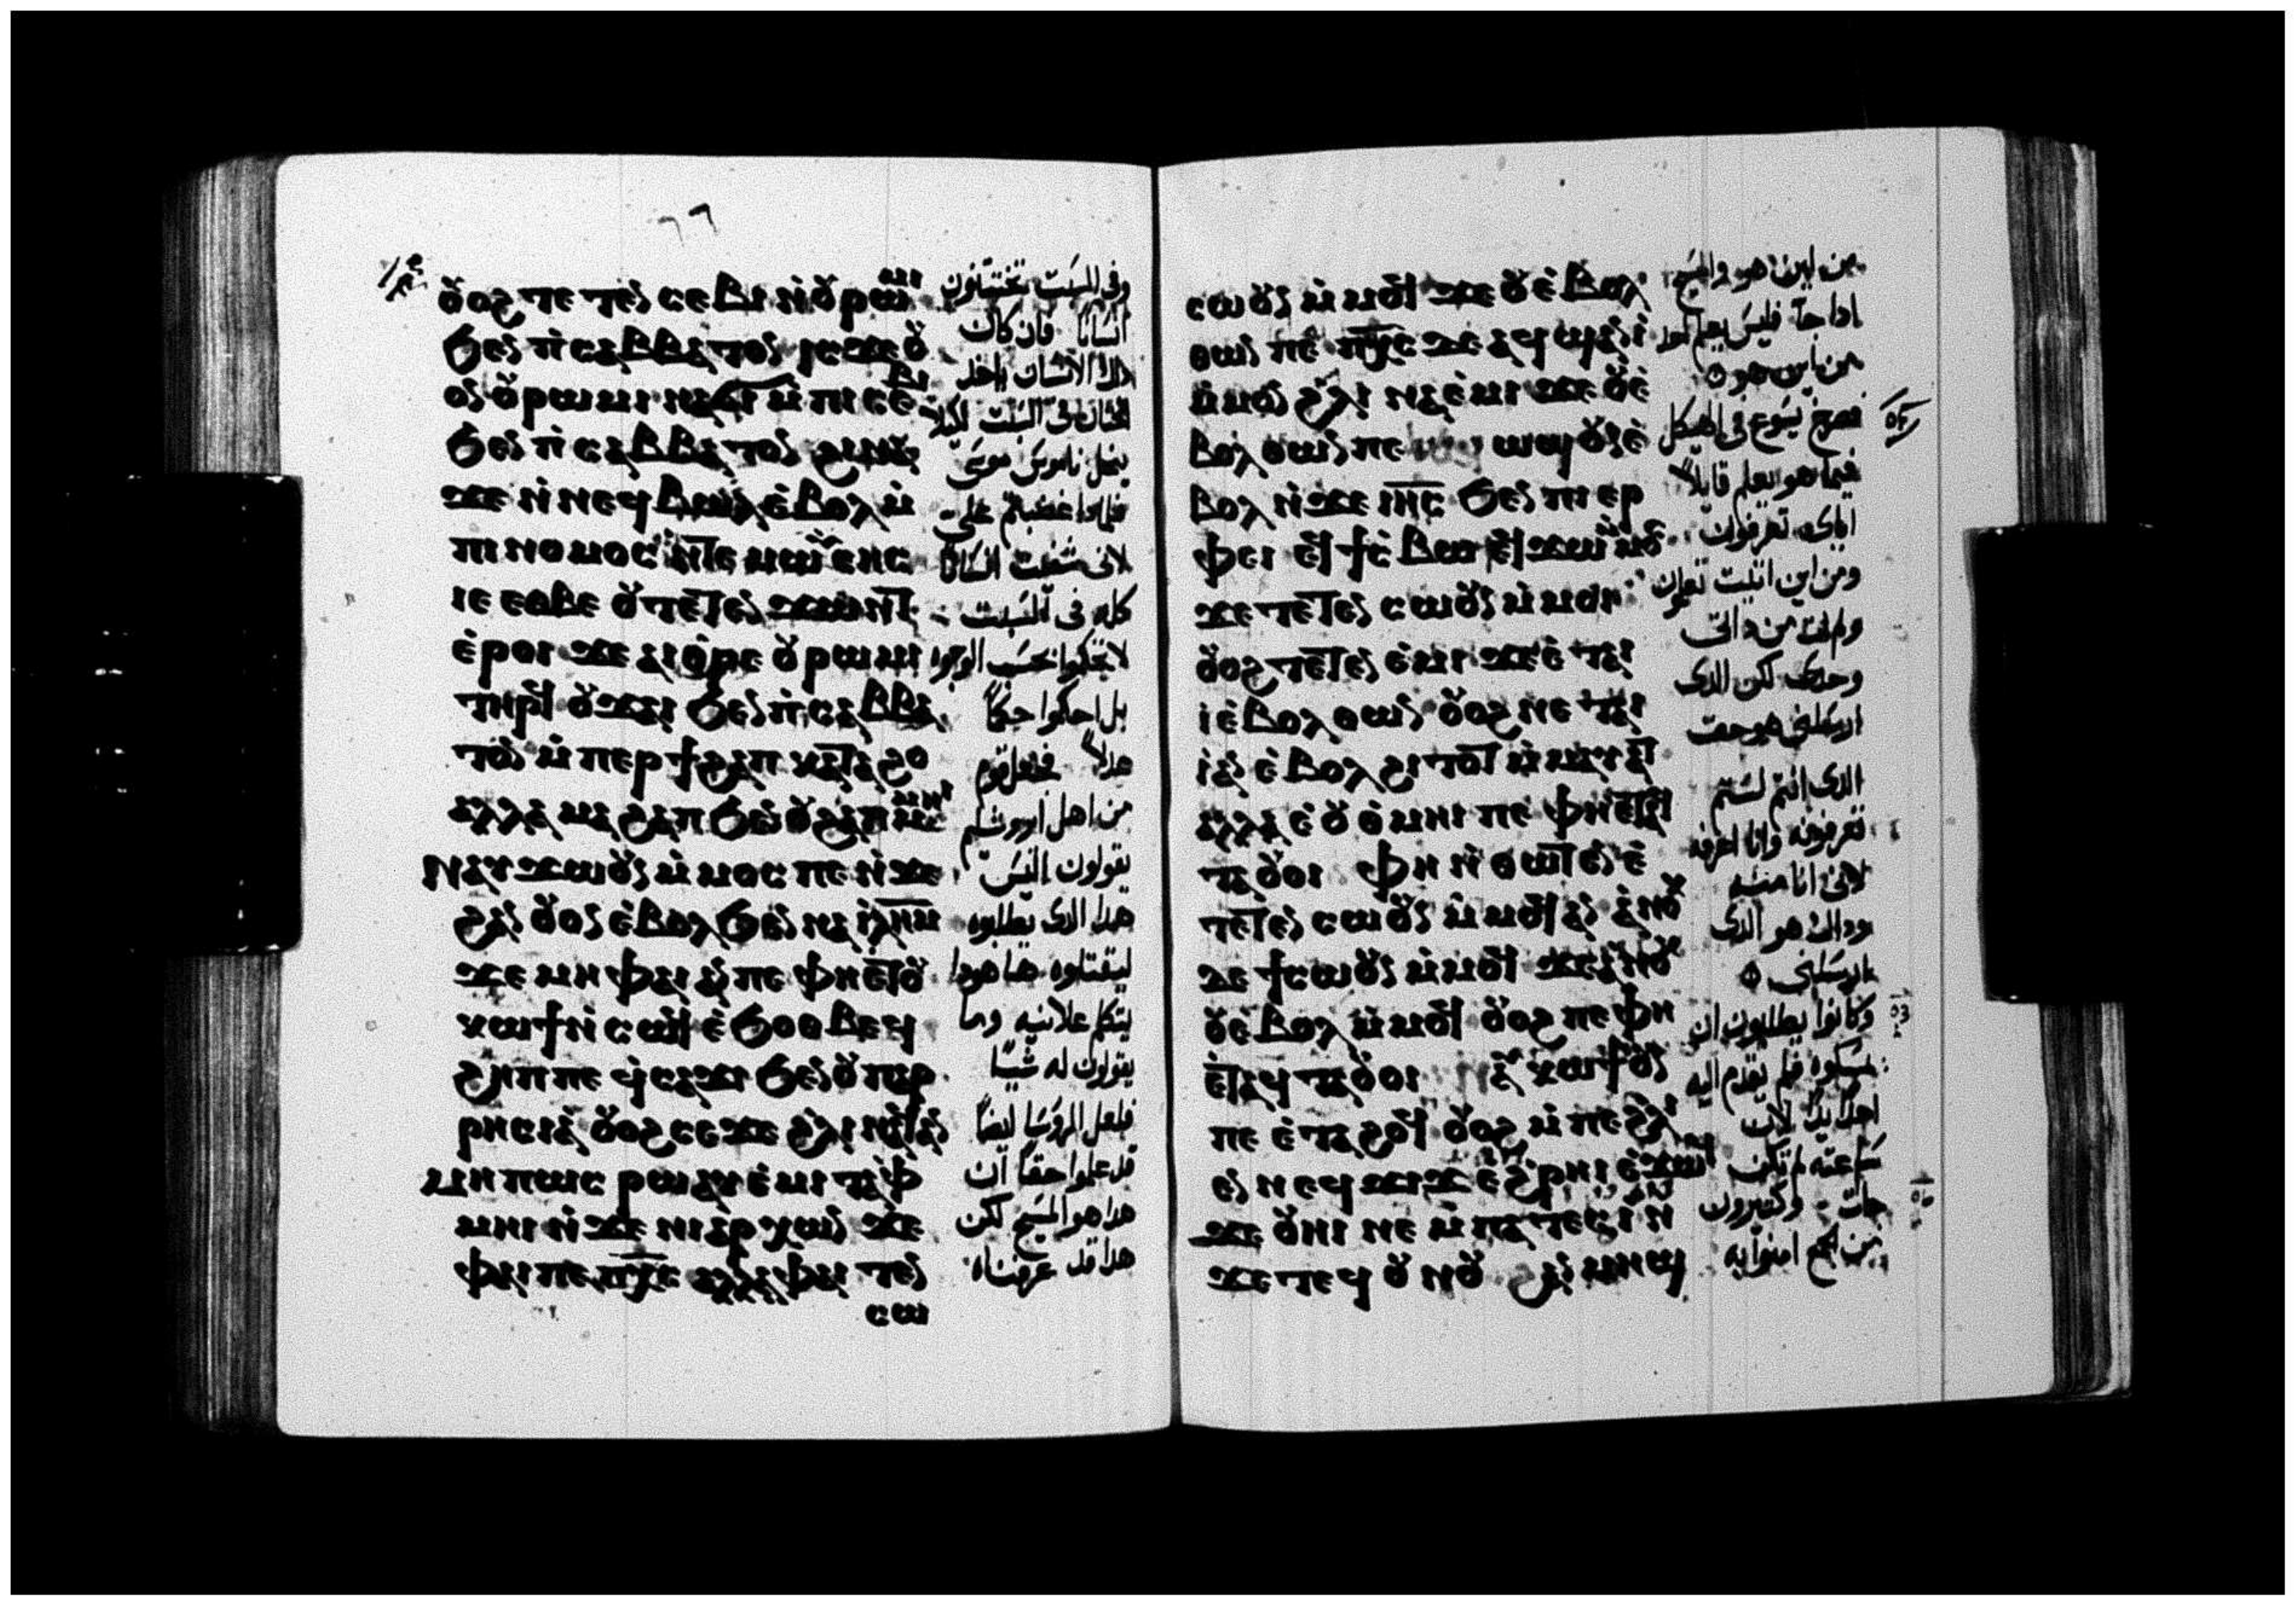 ⲟⲩⲟϩ ⲧⲉⲧⲉⲛⲥⲉⲃⲓ ⲛⲟⲩⲣⲱⲙⲓ
ϧⲉⲛ ⲡⲥⲁⲃⲃⲁⲧⲟⲛ ⲓⲥϫⲉ ⲟⲩ
ⲟⲛ ⲟⲩⲣⲱⲙⲓ ⲛⲁϭⲓ ⲙⲡⲓⲥⲉⲃⲓ
ϧⲉⲛ ⲡⲥⲁⲃⲃⲁⲧⲟⲛ ϩⲓⲛⲁ
ϫⲉ ⲛⲛⲉϥⲃⲱⲗ ⲉⲃⲟⲗ ⲙ
ⲡⲓⲛⲟⲙⲟⲥ ⲛⲧⲉ ⲙⲱⲩⲥⲏⲥ
ⲓⲉ ⲉⲑⲃⲉ ⲟⲩ ⲧⲉⲧⲉⲛϫⲱⲛⲧ
ⲉⲣⲟⲓ ϫⲉ ⲁⲓⲑⲣⲉ ⲟⲩⲣⲱⲙⲓ
ⲧⲏⲣϥ ⲟⲩϫⲁⲓ ϧⲉⲛ ⲡⲥⲁⲃⲃⲁ
ⲧⲟⲛ ⲙⲡⲉⲣϯϩⲁⲡ ⲕⲁⲧⲁ ϩⲟ
ⲁⲗⲗⲁ ⲙⲁϩⲁⲡ ϧⲉⲛ ⲟⲩϩⲁⲡ ⲙⲙⲏⲓ
ⲛⲁⲩϫⲱⲟⲩⲛ ⲙⲙⲟⲥ ⲡⲉ ⲛϫⲉ
ϩⲁⲛⲟⲩⲟⲛ ⲉⲃⲟⲗ ϧⲉⲛ ⲛⲁ ⲓⲗⲏⲙ
ϫⲉ ⲙⲏ ⲫⲁⲓ ⲁⲛ ⲡⲉ ⲫⲏ ⲉⲧⲟⲩ
ⲕⲱϯ ⲛⲥⲱϥ ⲉϧⲟⲑⲃⲉϥ
ϩⲏⲡⲡⲉ ϥⲥⲁϫⲓ ϧⲉⲛ ⲟⲩⲡⲁⲣ
ⲣⲏⲥⲓⲁ ⲟⲩⲟϩ ⲥⲉϫⲉ ϩⲗⲓ ⲛⲁϥ ⲁⲛ
ⲙⲏⲡⲱⲥ ⲣⲱ ⲁⲩⲉⲙⲓ ⲧⲁⲫ
ⲙⲏⲓ ⲛϫⲉ ⲛⲓⲁⲣⲭⲱⲛ ϫⲉ
ⲫⲁⲓ ⲡⲉ ⲡⲭⲥ ⲁⲗⲗⲁ ⲫⲁⲓ ⲧⲉⲛ
ⲥⲱ
وفى السبت تختنون
انسانا فان كان
ذلك الانسان ياخذ
الختان فى السبت لكيلا
ينحل ناموس موسى
فلماذا غضبتم على
لانى شفيت انسانا
كله فى السبت
لا تحكموا بحسب الوجوه
بل احكموا حكما
عدلا فجعل قوم
من اهل اورشليم
يقولون اليس
هذا الذى يطلبوه
ليقتلوه ها هوذا
يتكلم علانيه وما
يقولون له شيئا
فلعل الروسا ايضا
قد علموا حقا ان
هذا هو المسيح لكن
هذا قد عرفناه
ⲥⲱⲟⲩⲛ ⲙⲙⲟϥ ϫⲉ ⲟⲩⲉⲃⲟⲗ
ⲑⲱⲛ ⲡⲉ ⲡⲭⲥ ϫⲉ ⲁϥϣⲁⲛⲓ
ⲙⲙⲟⲛ ϩⲗⲓ ⲛⲁⲉⲙⲓ ϫⲉ ⲟⲩⲉ
ⲃⲟⲗ ⲑⲱⲛ ⲡⲉ ⲱϣ ⲟⲩⲛ ⲉ
ⲃⲟⲗ ⲛϫⲉ ⲓⲏⲥ ϧⲉⲛ ⲡⲓⲉⲣ
ⲫⲉⲓ ⲉϥϯⲥⲃⲱ ⲉϥϫⲱ ⲙⲙⲟⲥ
ϫⲉ ⲧⲉⲧⲉⲛⲥⲱⲟⲩⲛ ⲙⲙⲟⲓ
ⲟⲩⲟϩ ⲧⲉⲧⲉⲛⲉⲙⲓ ϫⲉ ⲉⲧⲁⲓ
ⲓ ⲉⲃⲟⲗ ⲑⲱⲛ ⲟⲩⲟϩ ⲛⲉⲧⲁⲓ
ⲓ ⲁⲛ ⲉⲃⲟⲗ ϩⲓⲧⲟⲧ ⲙⲙⲁⲩⲁⲧ
ⲁⲗⲗⲁ ⲉⲟⲩⲑⲙⲏⲓ ⲡⲉ ⲫⲏ ⲉⲧⲁϥ
ⲧⲁⲟⲩⲟⲓ ⲫⲏ ⲛⲑⲱⲧⲉⲛ ⲉ
ⲧⲉⲧⲉⲛⲥⲱⲟⲩⲛ ⲙⲙⲟϥ ⲁⲛ ⲁⲛⲟⲕ
ⲇⲉ ϯⲥⲱⲟⲩⲛ ⲙⲙⲟϥ ϫⲉ ⲁⲛⲟⲕ
ⲟⲩⲉⲃⲟⲗ ⲙⲙⲟϥ ⲟⲩⲟϩ ⲡⲉ ⲫⲏ
ⲉⲧⲁϥⲧⲁⲟⲩⲟⲓ ⲛⲁⲩⲕⲱϯ ⲟⲩⲛ
ⲡⲉ ⲉⲧⲁϩⲟϥ ⲟⲩⲟϩ ⲙⲡⲉ ϩⲗⲓ
ⲉⲛ ⲛⲉϥϫⲓϫ ⲉϩⲣⲏⲓ ⲉϫⲱϥ
ϫⲉ ⲟⲩⲏⲓ ⲛⲉ ⲙⲡⲁⲧⲉⲥⲓ ⲛ
ϫⲉ ⲧⲉϥⲟⲩⲛⲟⲩ ϩⲁⲛⲙⲏϣ
من اين هو والمسيح
اذا جآ فليس يعلم احد
من اين هو
فصرخ يسوع فى الهيكل
فيما هو يعلم قايلا
اياى تعرفون
ومن اين اتيت تعلمون
ولم ات من ذاتى
وحدى لكن الذى
ارسلنى هو حق
الذى انتم لستم
تعرفونه وانا اعرفه
لانى انا منه
وذاك هو الذى
ارسلنى
وكانوا يطلبون ان
يمسكوه فلم يقدم اليه
احد يدا لان
ساعته لم تكن
جات وكثيرون
من الجمع امنوا به